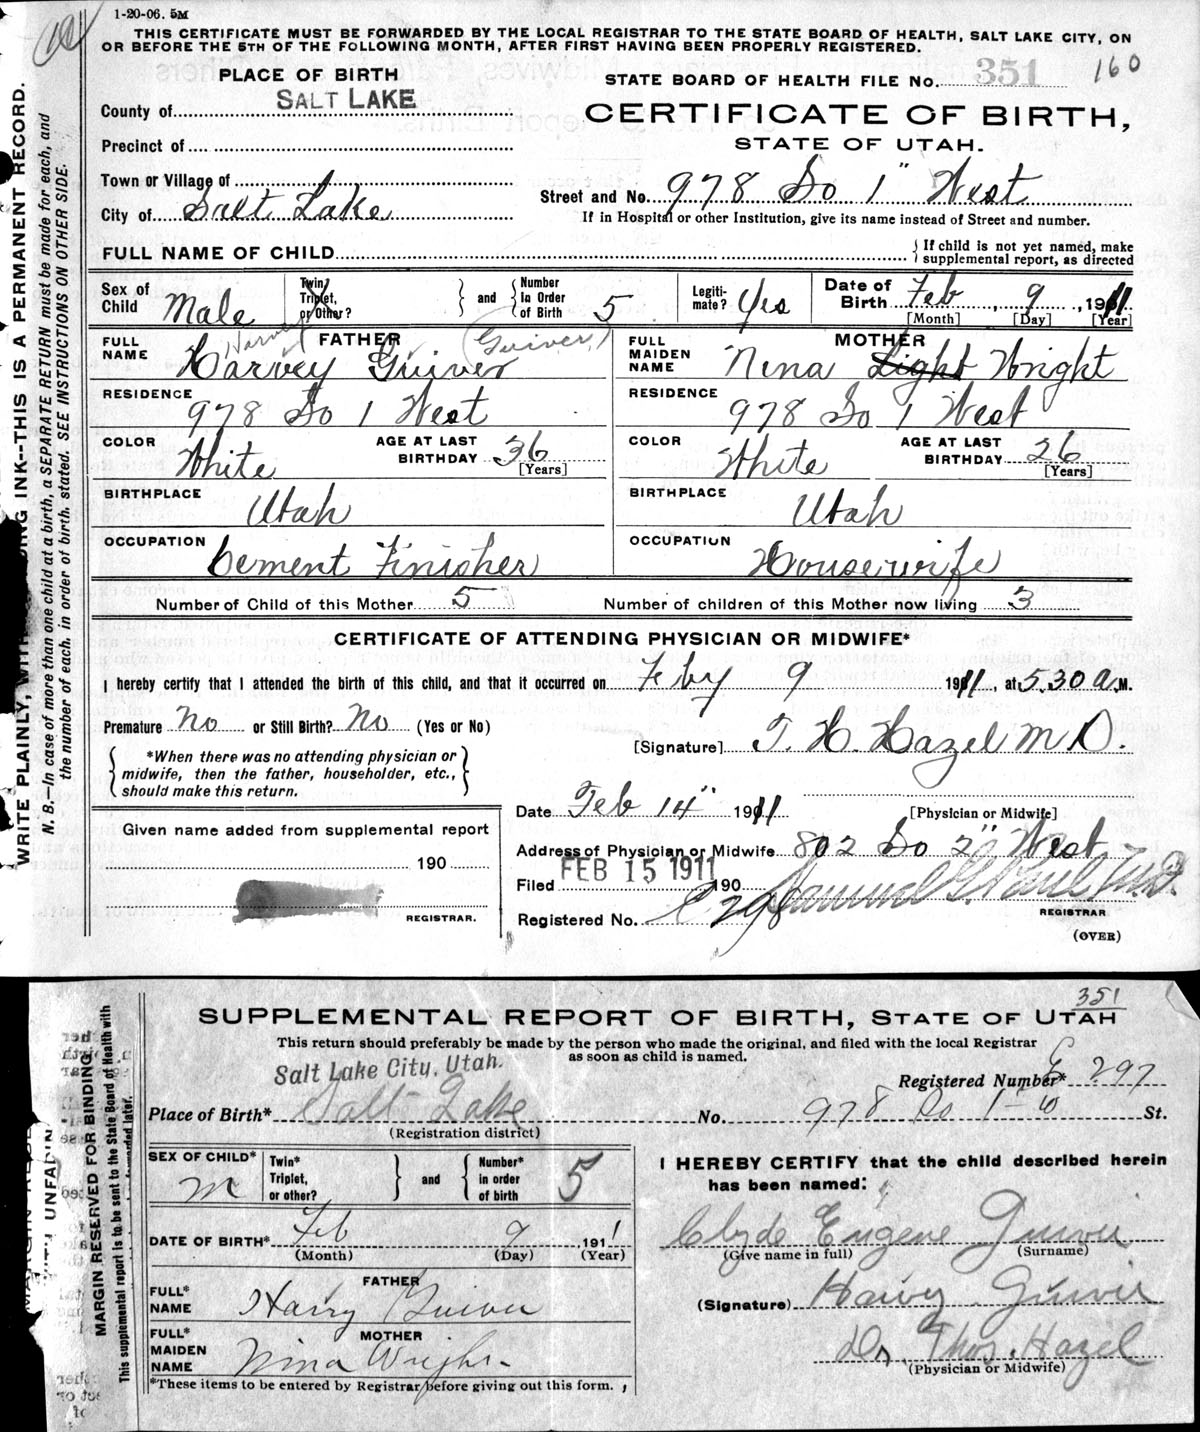 1-20-06. 5M
THIS CERTIFICATE MUST BE FORWARDED BY THE LOCAL REGISTRAR TO THE STATE BOARD OF HEALTH, SALT LAKE CITY, ON
OR BEFORE THE 5TH OF THE FOLLOWING MONTH, AFTER FIRST HAVING BEEN PROPERLY REGISTERED.
PLACE OF BIRTH
STATE BOARD OF HEALTH FILE No. 351 160
County of SALT LAKE
CERTIFICATE OF BIRTH,
STATE OF UTAH.
Precinct of
Town or Village of
City of Salt Lake
Street and No. 978 So 1" West
If in Hospital or other Institution, give its name instead of Street and number.
FULL NAME OF CHILD
If child is not yet named, make
supplemental report, as directed
Sex of Child Male
Twin, Triplet, or Other?
and
Number In Order of Birth 5
Legiti-mate? Yes
Date of Birth Feb 9, 1911
[Month] [Day] [Year]
FATHER
FULL NAME Harvey Guiver
Harvey (Guiver)
MOTHER
FULL MAIDEN NAME Nena Light Wright
RESIDENCE 978 So 1 West
RESIDENCE 978 So 1 West
COLOR White
AGE AT LAST BIRTHDAY 36 [Years]
COLOR White
AGE AT LAST BIRTHDAY 26 [Years]
BIRTHPLACE Utah
BIRTHPLACE Utah
OCCUPATION Cement Finisher
OCCUPATION Housewife
Number of Child of this Mother 5
Number of children of this Mother now living 3
CERTIFICATE OF ATTENDING PHYSICIAN OR MIDWIFE*
I hereby certify that I attended the birth of this child, and that it occurred on Feby 9 1911, at 5.30 a.M.
Premature No or Still Birth? No (Yes or No)
[Signature] T. H. Hazel M D.
*When there was no attending physician or
midwife, then the father, householder, etc.,
should make this return.
[Physician or Midwife]
Date Feb 14" 1911
Given name added from supplemental report
190
REGISTRAR.
Address of Physician or Midwife 802 So 2" West
Filed FEB 15 1911 190
Registered No.
REGISTRAR
(OVER)
WRITE PLAINLY, INK--THIS IS A PERMANENT RECORD.
N. B.—In case of more than one child at a birth, a SEPARATE RETURN must be made for each, and
the number of each, in order of birth, stated. SEE INSTRUCTIONS ON OTHER SIDE.
351
SUPPLEMENTAL REPORT OF BIRTH, STATE OF UTAH
This return should preferably be made by the person who made the original, and filed with the local Registrar
as soon as child is named.
Salt Lake City, Utah.
Registered Number* 297
Place of Birth* Salt Lake No. 978 So 1 St.
(Registration district)
SEX OF CHILD* M
Twin* Triplet, or other?
and
Number* in order of birth 5
I HEREBY CERTIFY that the child described herein
has been named:
Clyde Eugene Guiver
(Give name in full) (Surname)
DATE OF BIRTH* Feb 9, 1911
(Month) (Day) (Year)
FATHER
FULL* NAME Harry Guiver
(Signature) Harvy Guiver
MOTHER
FULL* MAIDEN NAME Nina Wright
Dr. Thos. Hazel
(Physician or Midwife)
*These items to be entered by Registrar before giving out this form.
MARGIN RESERVED FOR BINDING
This supplemental report is to be sent to the State Board of Health with